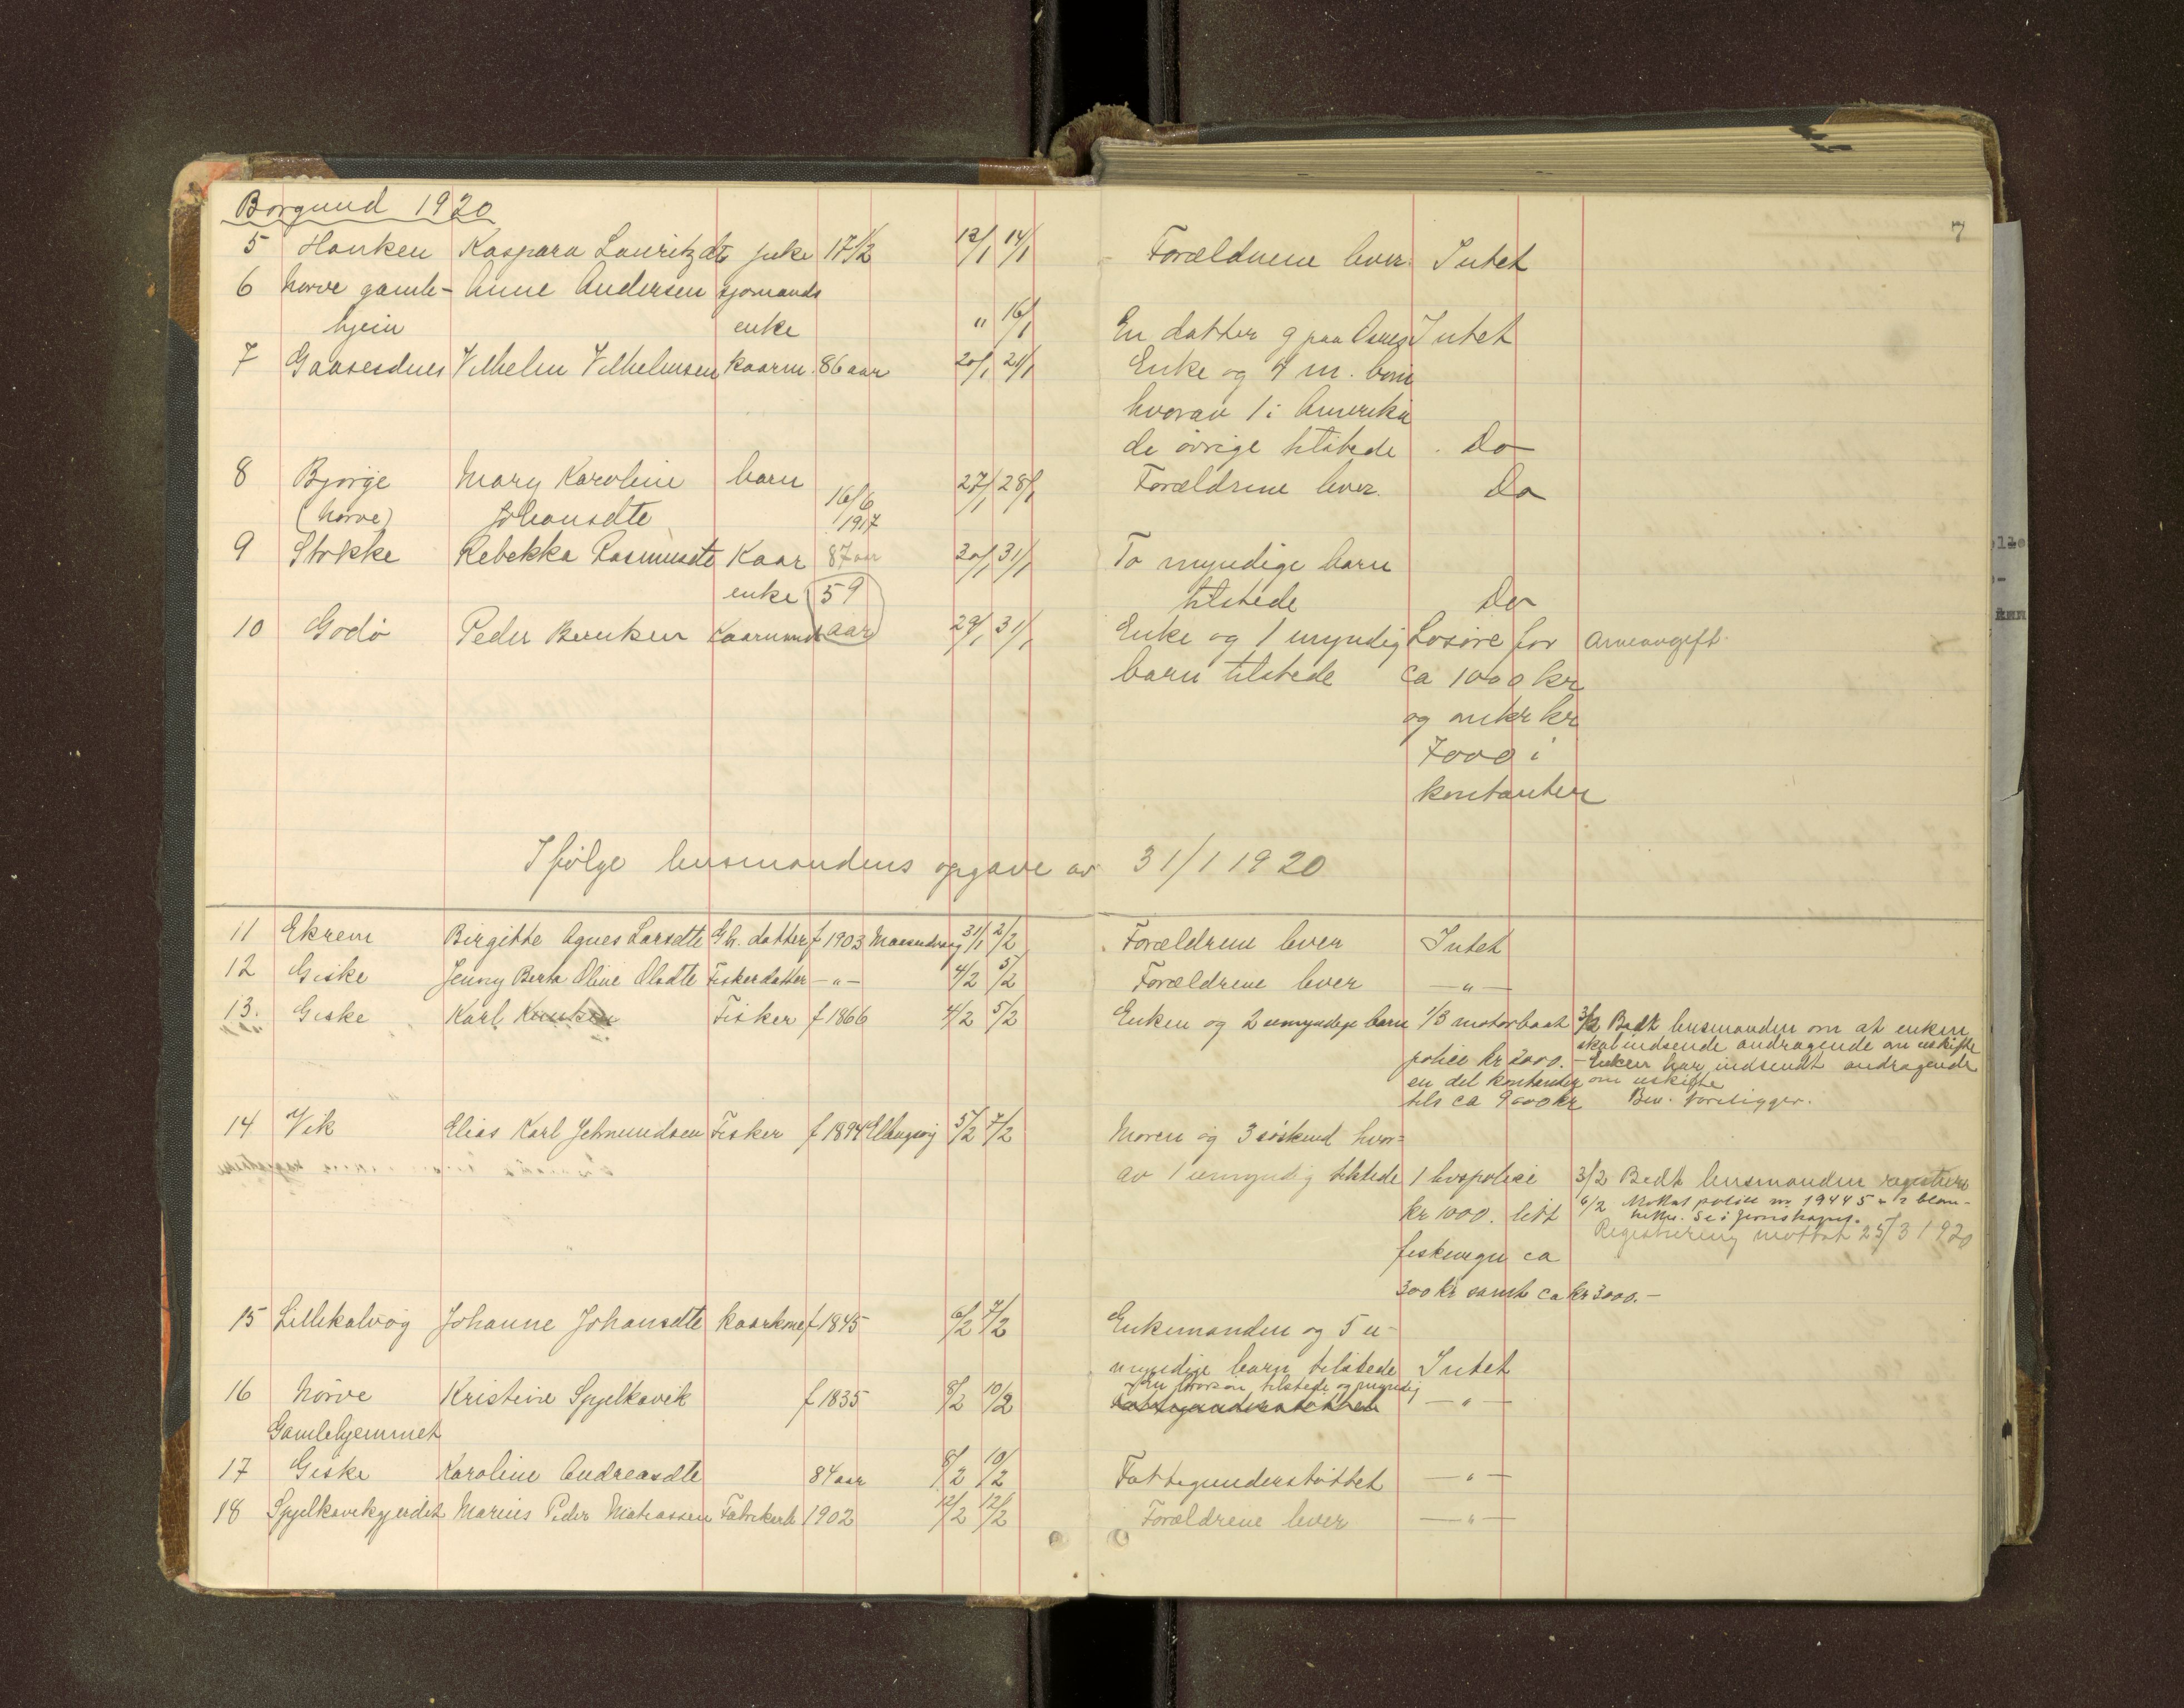 Borgund 1920
7
5 Hanken Kaspara Lauritzdt pike 17 1/2 12/1 14/1 Forældrene lever Intet
6 Nørve gamle- Anne Andersen sjømands
hjem enke " 16/1 En datter g paa Intet
7 Gaaseidnes Vilhelm Vilhelmsen kaarm. 86 aar 20/1 21/1 Enke og 4 m. barn
hvorav 1 i Amerika
de øvrige tilstede Do
8 Bjørge Mary Karoline barn 16/6 27/1 28/1 Forældrene lever. Do
(Nørve) Johansdtr 1917
9 Stokke Rebekka Rasmusdtr Kaar 87 aar 20/1 31/1 To myndige barn
enke 59 tilstede Do
10 Godø Peder Bentsen Kaarmand aar 29/1 31/1 Enke og 1 myndig Løsøre for Arveavgift.
barn tilstede ca 1000 kr
og omkr kr
7000 i
kontanter
Ifølge lensmandens opgave av 31/1 1920
11 Ekrem Birgitte Agnes Larsdtr Gh. datter f 1903 31/1 2/2 Forældrene lever Intet
12 Giske Jenny Berta Oline Olsdtr Fiskerdatter -"- 4/2 5/2 Forældrene lever -"-
13. Giske Karl Knutsen Fisker f 1866 4/2 5/2 Enken og 2 umyndige barn 1/3 motorbaat 3/2 Bedt lensmanden om at enken
skal indsende andragende om uskifte
police kr 2000.- Enken har indsendt andragende
en del kontanter om uskifte
tils ca 9000 kr Bev. foreligger.
14 Vik Elias Karl Jetmundsen Fisker f 1894 Ellingsøy 5/2 7/2 Moren og 3 søskend hvor=
av 1 umyndig tilstede 1 livspolice 3/2 Bedt lensmanden registrere
kr 1000. litt 6/2 Mottat police nr 19445
Registrering mottat 25/3 1920
fiskeregn ca
300 kr samt ca kr 3000.-
15 Lillekalvøg Johanne Johansdtr kaarkone f 1845 6/2 7/2 Enkemanden og 5 u-
myndige barn tilstede Intet
16 Nørve Kristine Spjelkavik f 1835 8/2 10/2 En brorsøn tilstede og myndig
Fattigunderstøttet -"-
Gamlehjemmet
17 Giske Karoline Andreasdtr 84 aar 8/2 10/2 Fattigunderstøttet -"-
18 Spjelkavikgjerdet Marius Peder Matiassen Fabrikarb 1902 12/2 12/2 Forældrene lever -"-